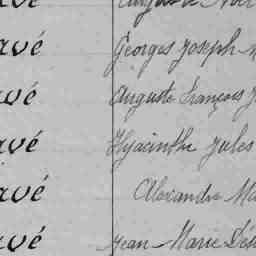 avé Georges Joseph
avé Auguste François
avé Hyacinthe Jules
avé Alexandre Ma
avé Jean Marie Dés